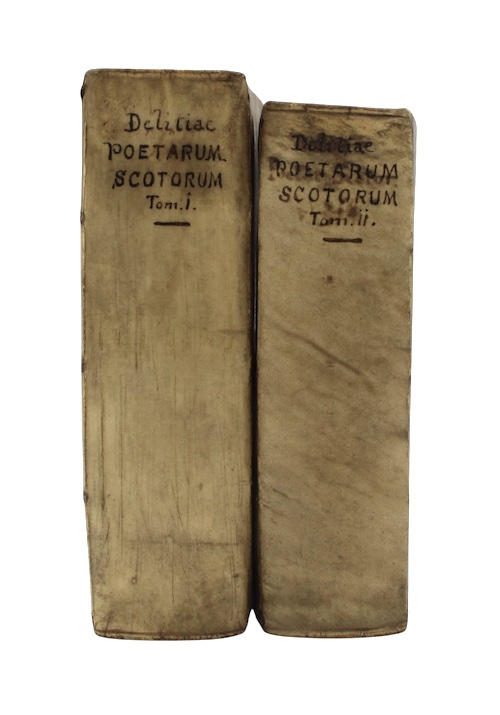 Delitiae
POETARUM
SCOTORUM
Tom. i.
Delitiae
POETARUM
SCOTORUM
Tom. ii.